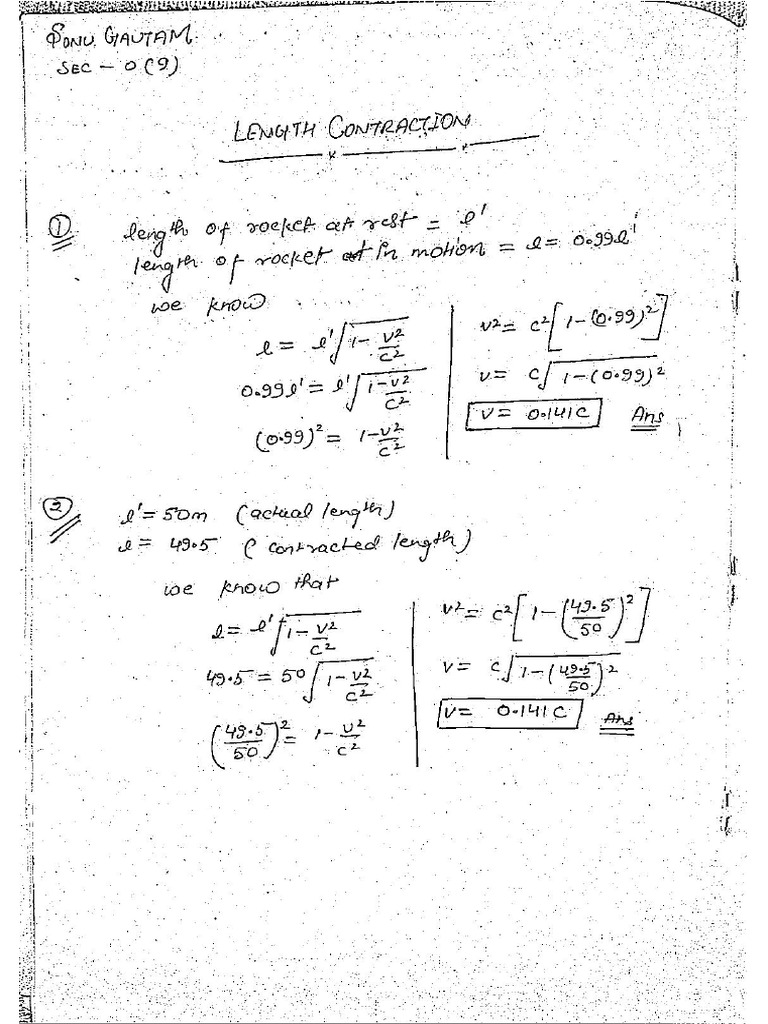 SONU GAUTAM
SEC - O(9)
LENGTH CONTRACTION
① length of rocket at rest = l'
length of rocket in motion = l = 0.99l'
we know
l = l'√(1 - v²/c²)
0.99l' = l'√(1 - v²/c²)
(0.99)² = 1 - v²/c²
v² = c²[1 - (0.99)²]
v = c√(1 - (0.99)²)
v = 0.141c Ans
② l' = 50m (actual length)
l = 49.5 (contracted length)
we know that
l = l'√(1 - v²/c²)
49.5 = 50√(1 - v²/c²)
(49.5/50)² = 1 - v²/c²
v² = c²[1 - (49.5/50)²]
v = c√(1 - (49.5/50)²)
v = 0.141c Ans